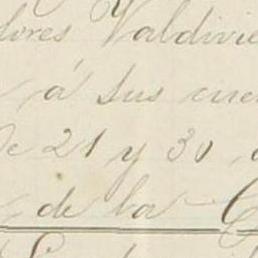 lores Valdivie
á sus cue
de 21 y 30
de la C